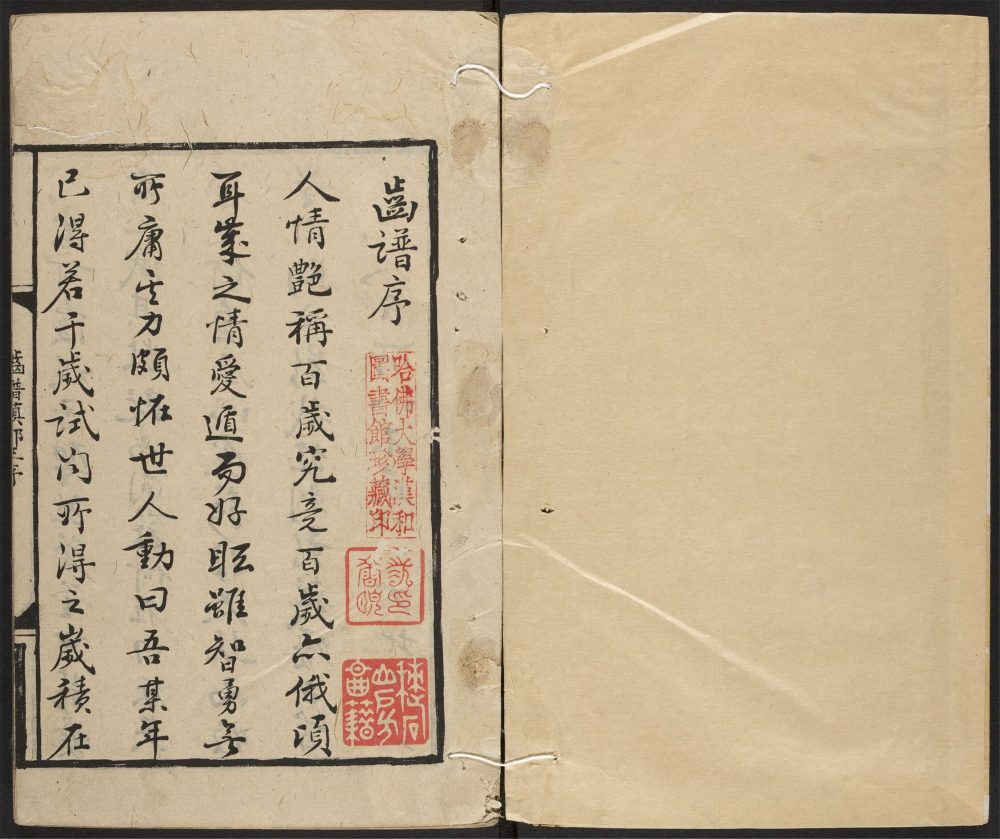 齒譜序
哈佛大學漢和
圖書館珍藏印
人情艷稱百歲究竟百歲亦俄頃
耳歲之情愛遁而好眩雖智勇無
所庸其力頗怪世人動曰吾某年
已得若干歲試问所得之歲積在
齒譜